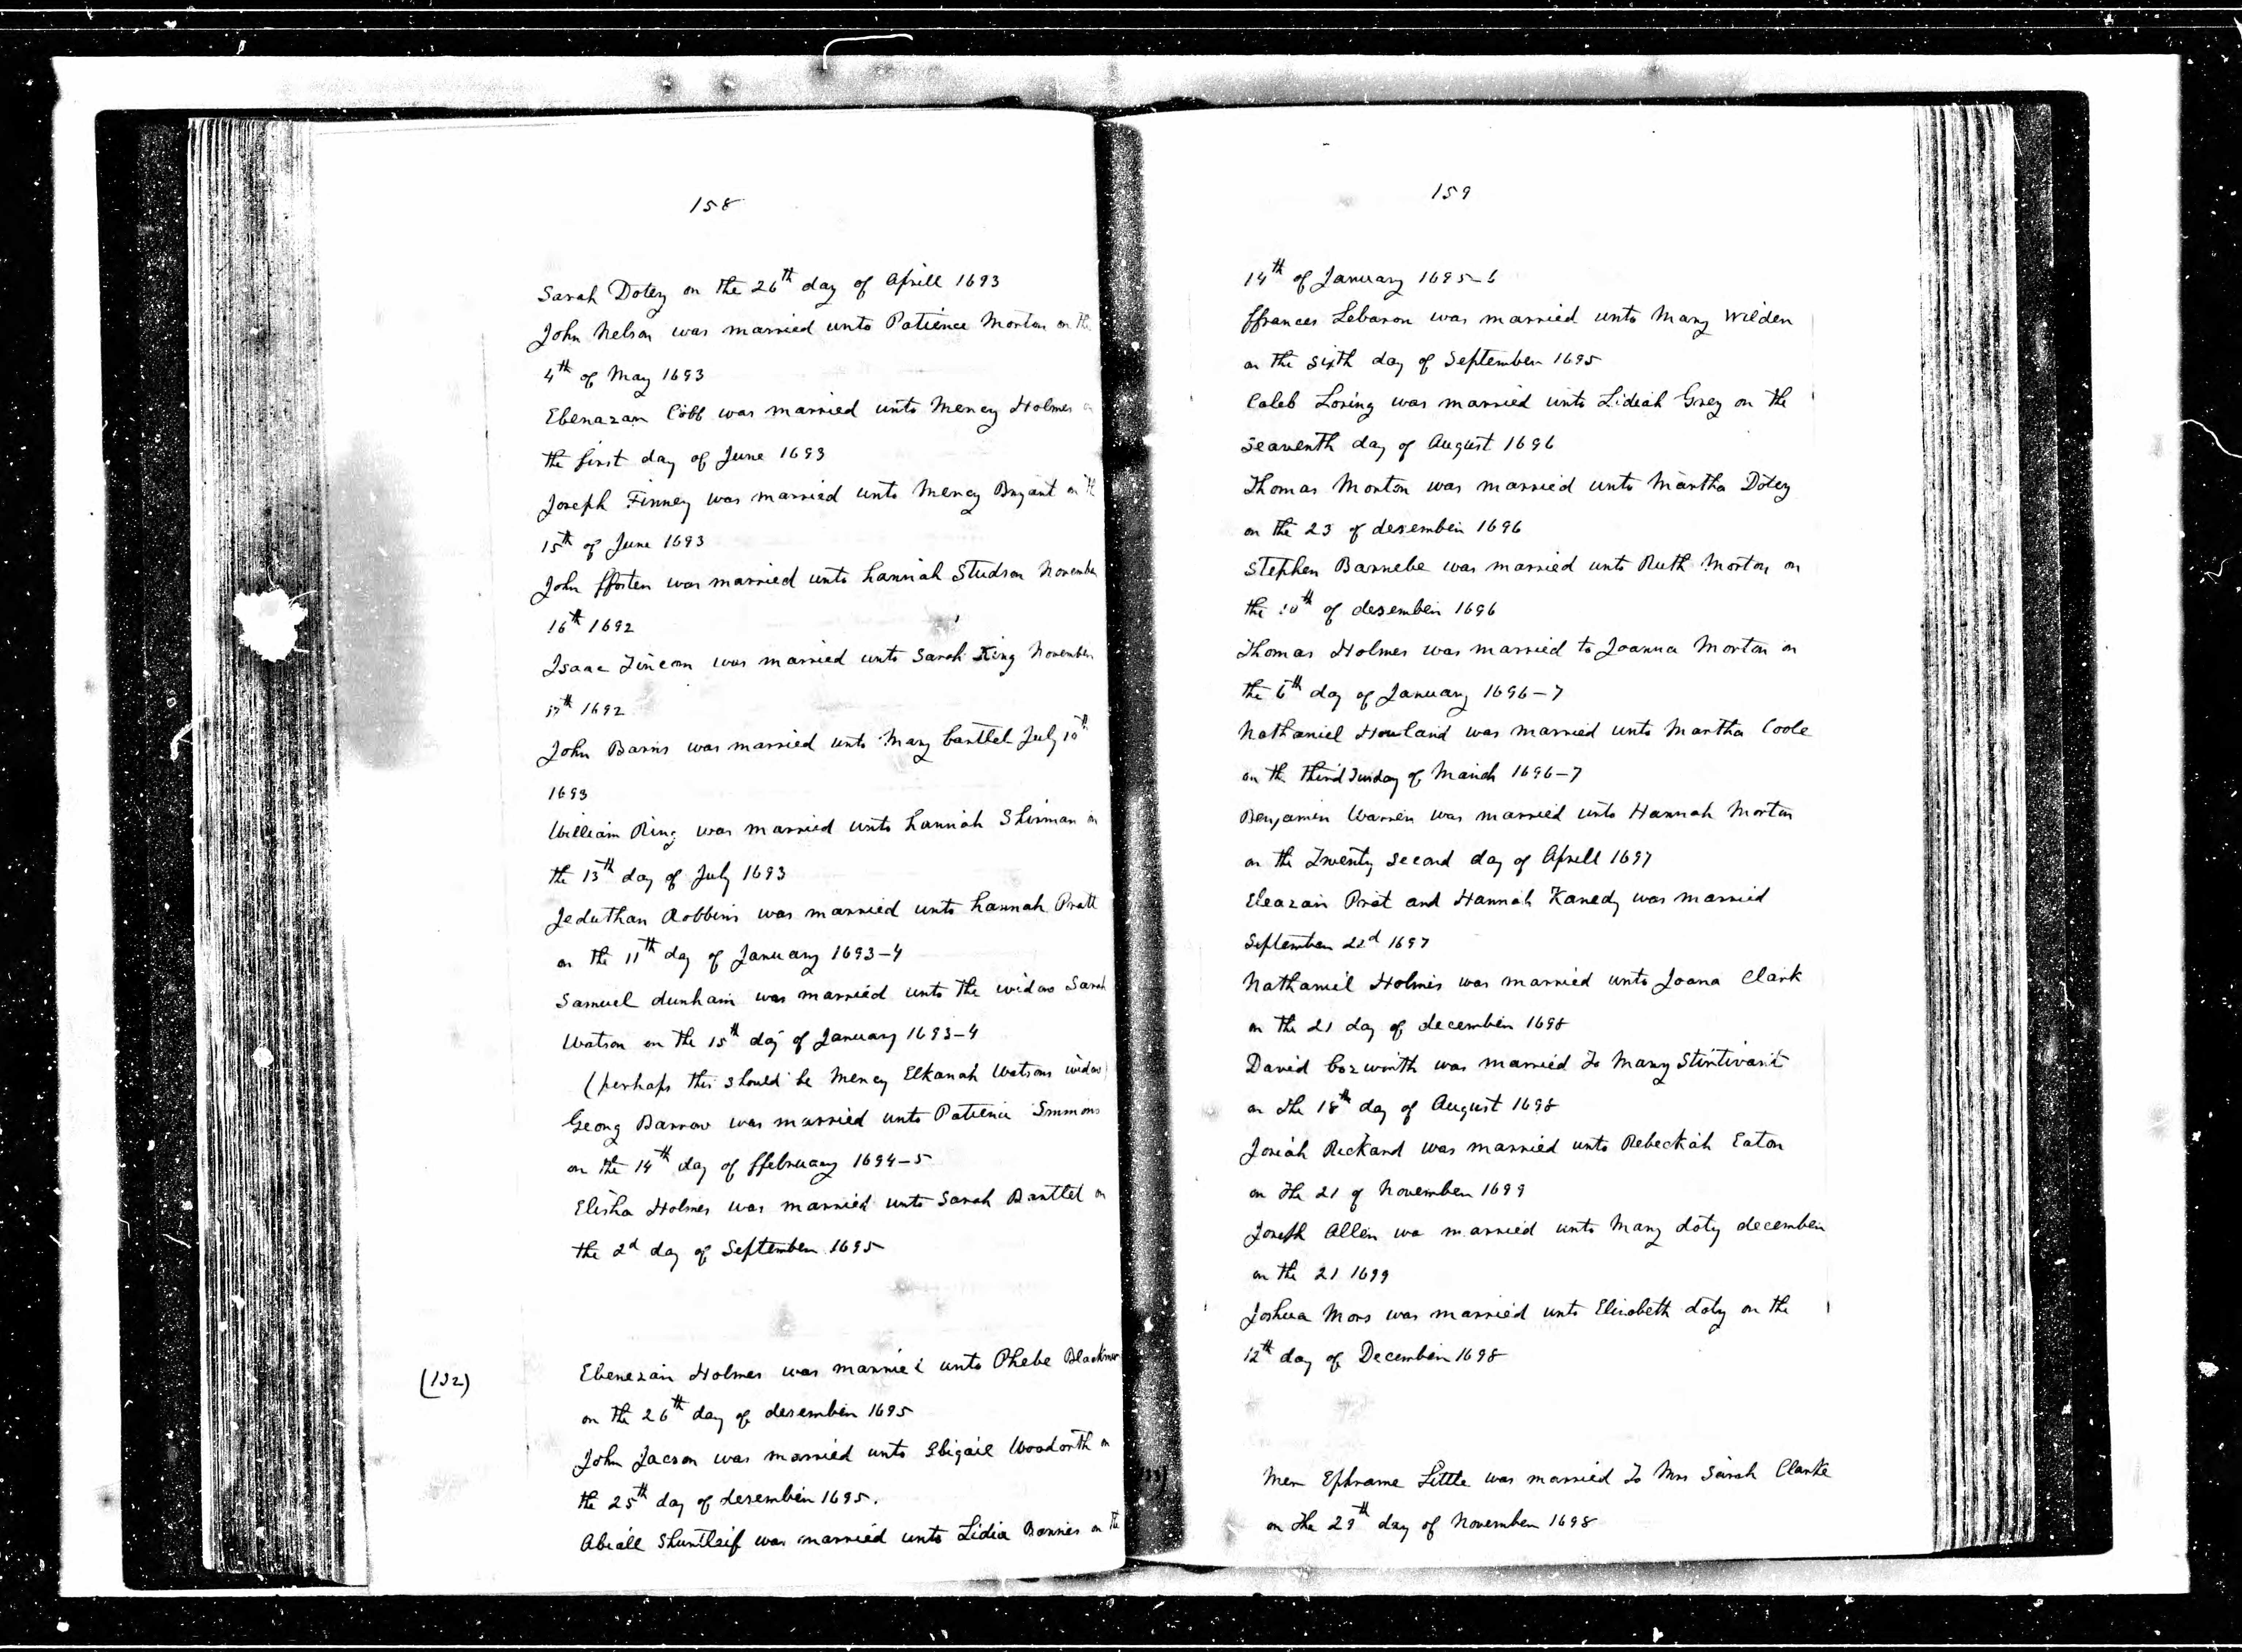 158
Sarah Dotey on the 26th day of Aprill 1693
John Nelson was married unto Patience Morton on the
4th of May 1693
Ebenazar Cobb was married unto Mercy Holmes
the first day of June 1693
Joseph Finney was married unto Mercy Bryant on th
15th of June 1693
John ffosten was married unto hannah Studson November
16th 1692
Isaac Tincom was married unto Sarah King November
17th 1692
John Barns was married unto Mary bartlet July 10th
1693
William Ring was married unto hannah Sherman on
the 13th day of July 1693
Jeduthan Robbins was married unto hannah Pratt
on the 11th day of January 1693-4
Samuel dunham was married unto the widow Sarah
Watson on the 15th day of January 1693-4
(perhaps this should be Mercy Elkanah Watsons widow)
Georg Barrow was married unto Patience Simmons
on the 14th day of ffebruary 1694-5
Elisha Holmes was married unto Sarah Bartlet on
the 2d day of September 1695
(132)
Ebenezar Holmes was married unto Phebe Blackmer
on the 26th day of desember 1695
John Jacson was married unto Abigail Woodorth on
the 25th day of desember 1695.
Abiall Shurtleif was married unto Lidia Barnes on the
159
14th of January 1695-6
ffrances Lebaron was married unto Mary Wilden
on the sixth day of September 1695
Caleb Loring was married unto Lideah Grey on the
seaventh day of August 1696
Thomas Morton was married unto Martha Dotey
on the 23 of desember 1696
Stephen Barnebe was married unto Ruth Morton on
the 10th of desember 1696
Thomas Holmes was married to Joanna Morton on
the 6th day of January 1696-7
Nathaniel Howland was married unto Martha Coole
on th third Tusday of March 1696-7
Benjamin Warren was married unto Hannah Morton
on the Twenty second day of Aprell 1697
Eleazar Prat and Hannah Kanedy was married
September 22d 1697
Nathaniel Holmes was married unto Joana Clark
on the 21 day of december 1698
David bozworth was married To Mary Sturtivant
on the 18th day of August 1698
Josiah Rickard was married unto Rebeckah Eaton
on the 21 of November 1699
Joseph Allen wa married unto Mary doty december
on the 21 1699
Joshua Mors was married unto Elisabeth doty on the
12th day of December 1698
Mer Ephrame Little was married To Mrs Sarah Clarke
on the 29th day of November 1698